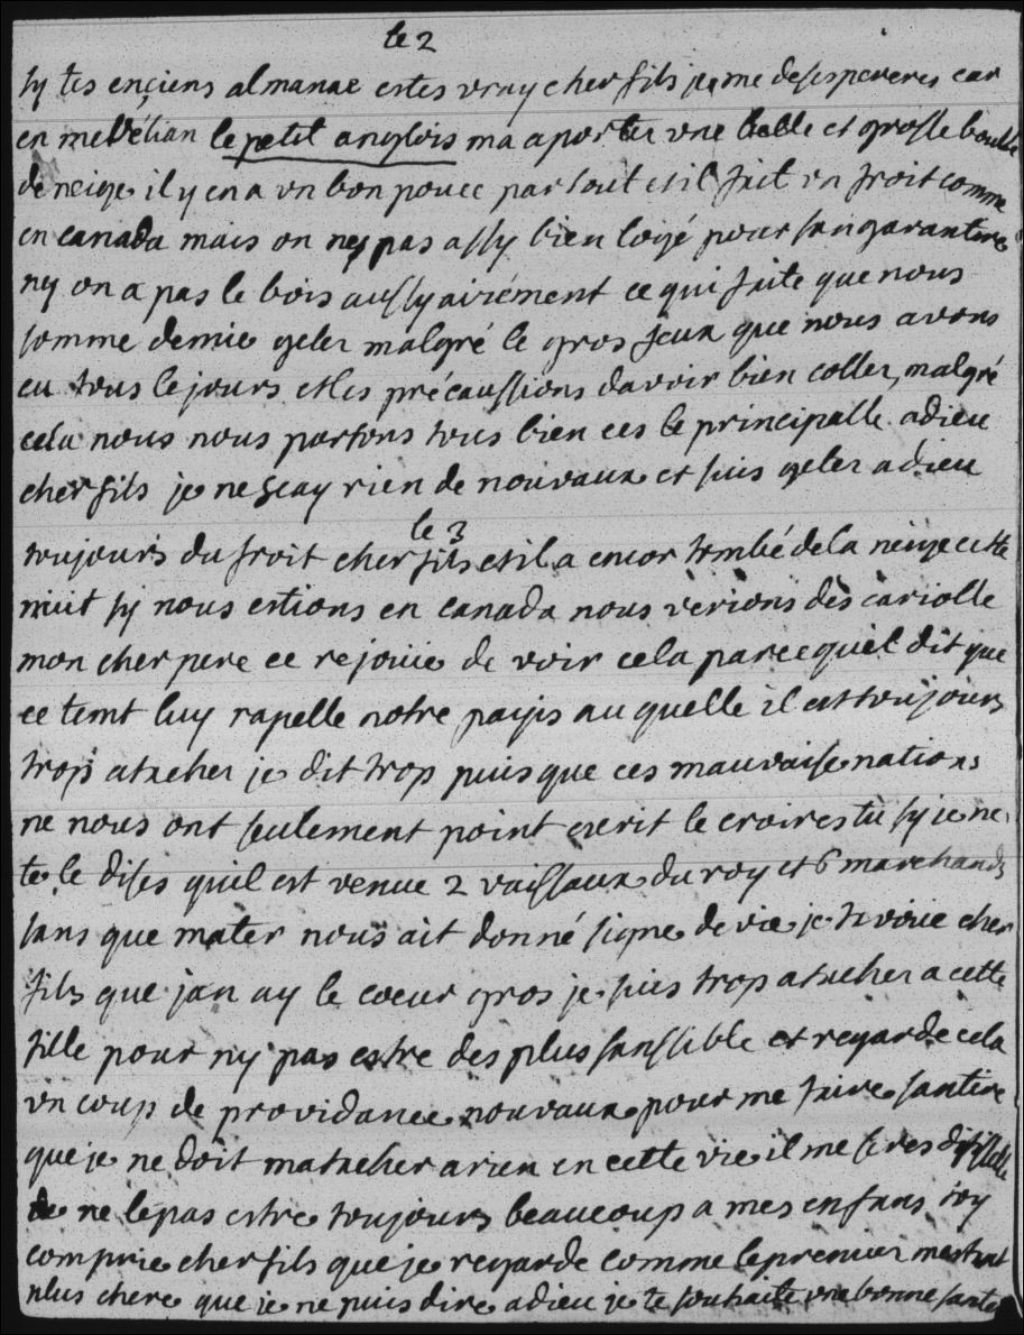 le 2
sy tes enciens almanac estes vray cher fils je me desespereres car
en me levelian le petit anglois ma aporter une belle et grosse boulle
de neige il y en a un bon pouce partout et il fait un froit comme
en canada mais on nes pas assy bien logé pour san garantire
ny on a pas le bois aussy airément ce qui faite que nous
somme demie geler malgré le gros feux que nous avons
eu tous le jours et les précaussions davoir bien coller, malgré
cela nous nous portons tous bien ces le principalle adieu
cher fils je ne scay rien de nouvaux et suis geler adieu
le 3
toujours du froit cher fils et il a encor tombé de la neige cette
nuit sy nous estions en canada nous verions des cariolle
mon cher pere ce rejouie de voir cela parce quil dit que
ce temt luy rapelle notre payis au quelle il est toujours
trop atacher je dit trop puis que ces mauvaise nations
ne nous ont seulement point ecrit le croires tu sy je ne
te le dises quil est venue 2 vaissaux du roy et 6 marchands
sans que mater nous ait donné signe de vie je tavoue cher
fils que jan ay le coeur gros je suis trop atacher a cette
fille pour ny pas estre des plus sanssible et regarde cela
un coup de providance nouvaux pour me faire santire
que je ne doit matacher a rien en cette vie il me seres dificille
de ne lepas estre toujours beaucoup a mes enfans toy
comprie cher fils que je regarde comme le premier mestant
plus chere que je ne puis dire adieu je te souhaite une bonne santé